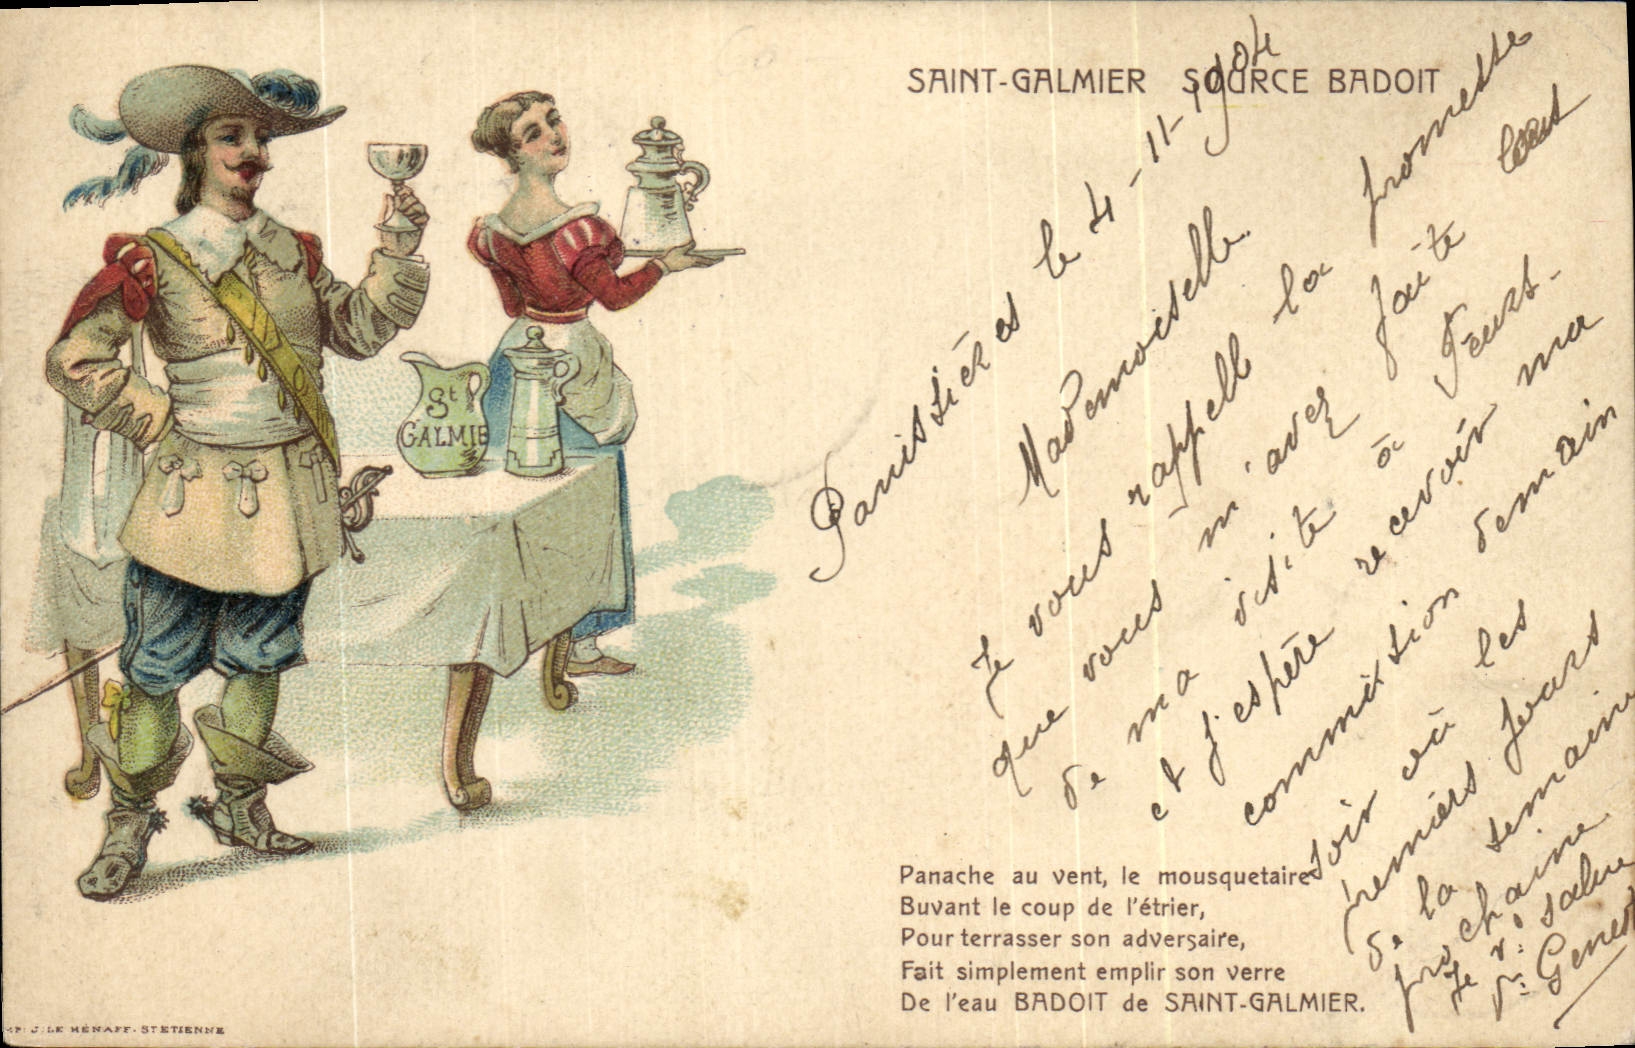 SAINT-GALMIER SOURCE BADOIT
Panissières le 4-11-1904
Mademoiselle.
Je vous rappelle la promesse
que vous m'avez faite lors
de ma visite à Feurs.
et j'espère recevoir ma
commission demain
soir où les
premiers jours
de la semaine
prochaine
Je vs salue
Genest
St
GALMIE
Panache au vent, le mousquetaire
Buvant le coup de l'étrier,
Pour terrasser son adversaire,
Fait simplement emplir son verre
De l'eau BADOIT de SAINT-GALMIER.
J. LE HÉNAFF. ST ETIENNE